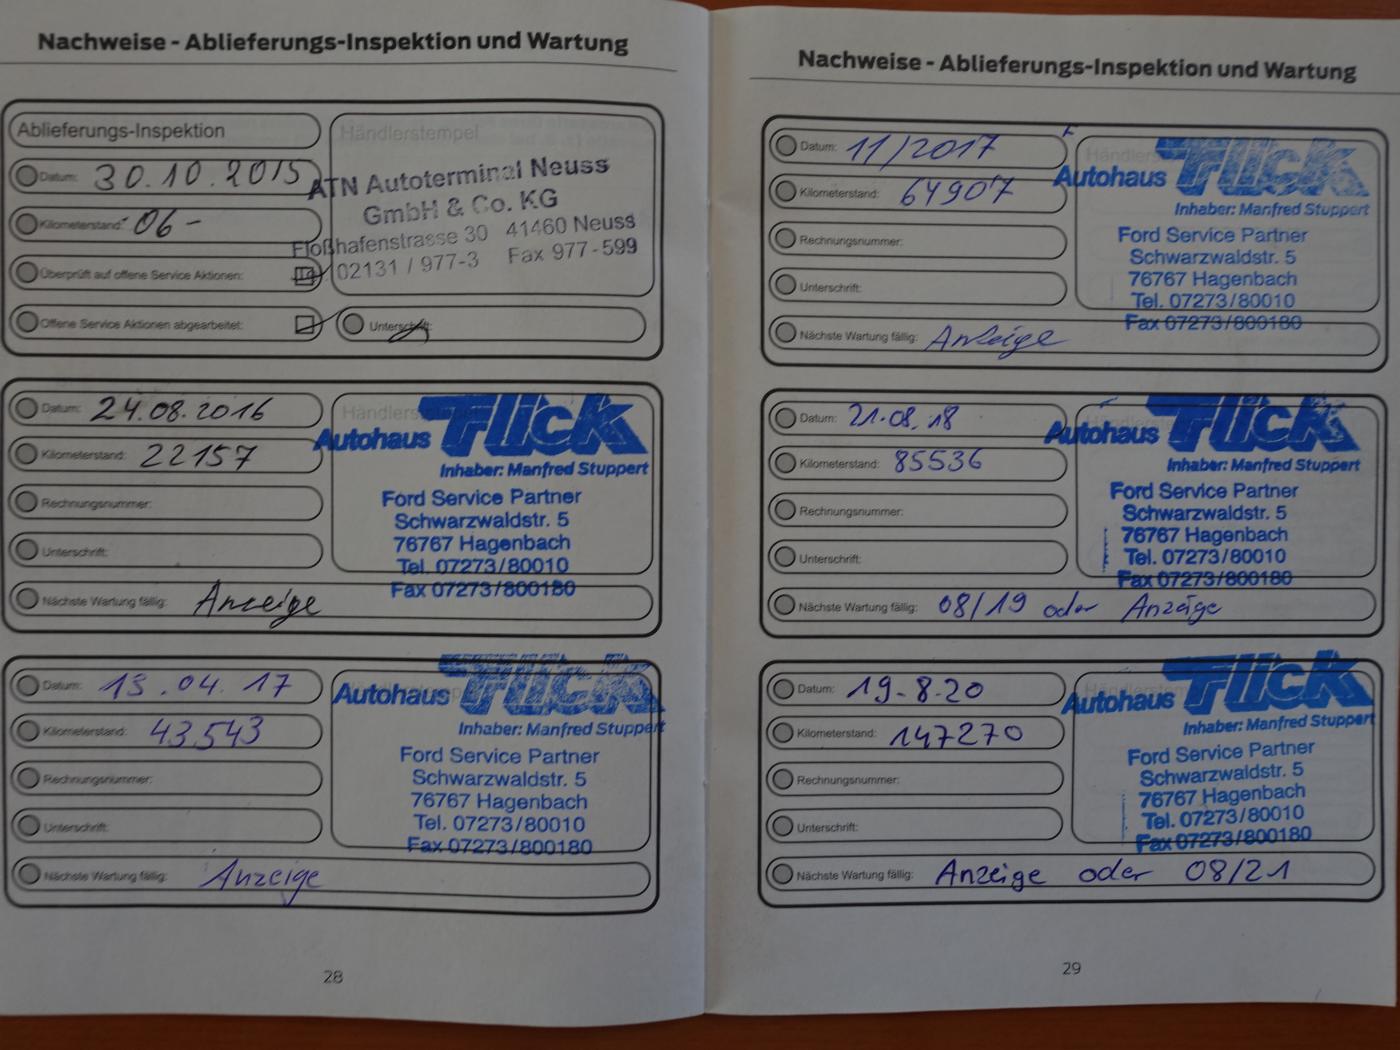 Nachweise - Ablieferungs-Inspektion und Wartung
Ablieferungs-Inspektion
Datum: 30.10.2015
Kilometerstand: 06 -
Überprüft auf offene Service Aktionen:
Offene Service Aktionen abgearbeitet:
Händlerstempel
ATN Autoterminal Neuss
GmbH & Co. KG
Floßhafenstrasse 30 41460 Neuss
02131 / 977-3 Fax 977-599
Unterschrift:
Datum: 24.08.2016
Kilometerstand: 22157
Rechnungsnummer:
Unterschrift:
Nächste Wartung fällig: Anzeige
Händlerstempel
Autohaus Flick
Inhaber: Manfred Stuppert
Ford Service Partner
Schwarzwaldstr. 5
76767 Hagenbach
Tel. 07273/80010
Fax 07273/800180
Datum: 13.04.17
Kilometerstand: 43543
Rechnungsnummer:
Unterschrift:
Nächste Wartung fällig: Anzeige
Autohaus Flick
Inhaber: Manfred Stuppert
Ford Service Partner
Schwarzwaldstr. 5
76767 Hagenbach
Tel. 07273/80010
Fax 07273/800180
28
Nachweise - Ablieferungs-Inspektion und Wartung
Datum: 11/2017
Kilometerstand: 64907
Rechnungsnummer:
Unterschrift:
Nächste Wartung fällig: Anzeige
Autohaus Flick
Inhaber: Manfred Stuppert
Ford Service Partner
Schwarzwaldstr. 5
76767 Hagenbach
Tel. 07273/80010
Fax 07273/800180
Datum: 21.08.18
Kilometerstand: 85536
Rechnungsnummer:
Unterschrift:
Nächste Wartung fällig: 08/19 oder Anzeige
Autohaus Flick
Inhaber: Manfred Stuppert
Ford Service Partner
Schwarzwaldstr. 5
76767 Hagenbach
Tel. 07273/80010
Fax 07273/800180
Datum: 19-8-20
Kilometerstand: 147270
Rechnungsnummer:
Unterschrift:
Nächste Wartung fällig: Anzeige oder 08/21
Autohaus Flick
Inhaber: Manfred Stuppert
Ford Service Partner
Schwarzwaldstr. 5
76767 Hagenbach
Tel. 07273/80010
Fax 07273/800180
29